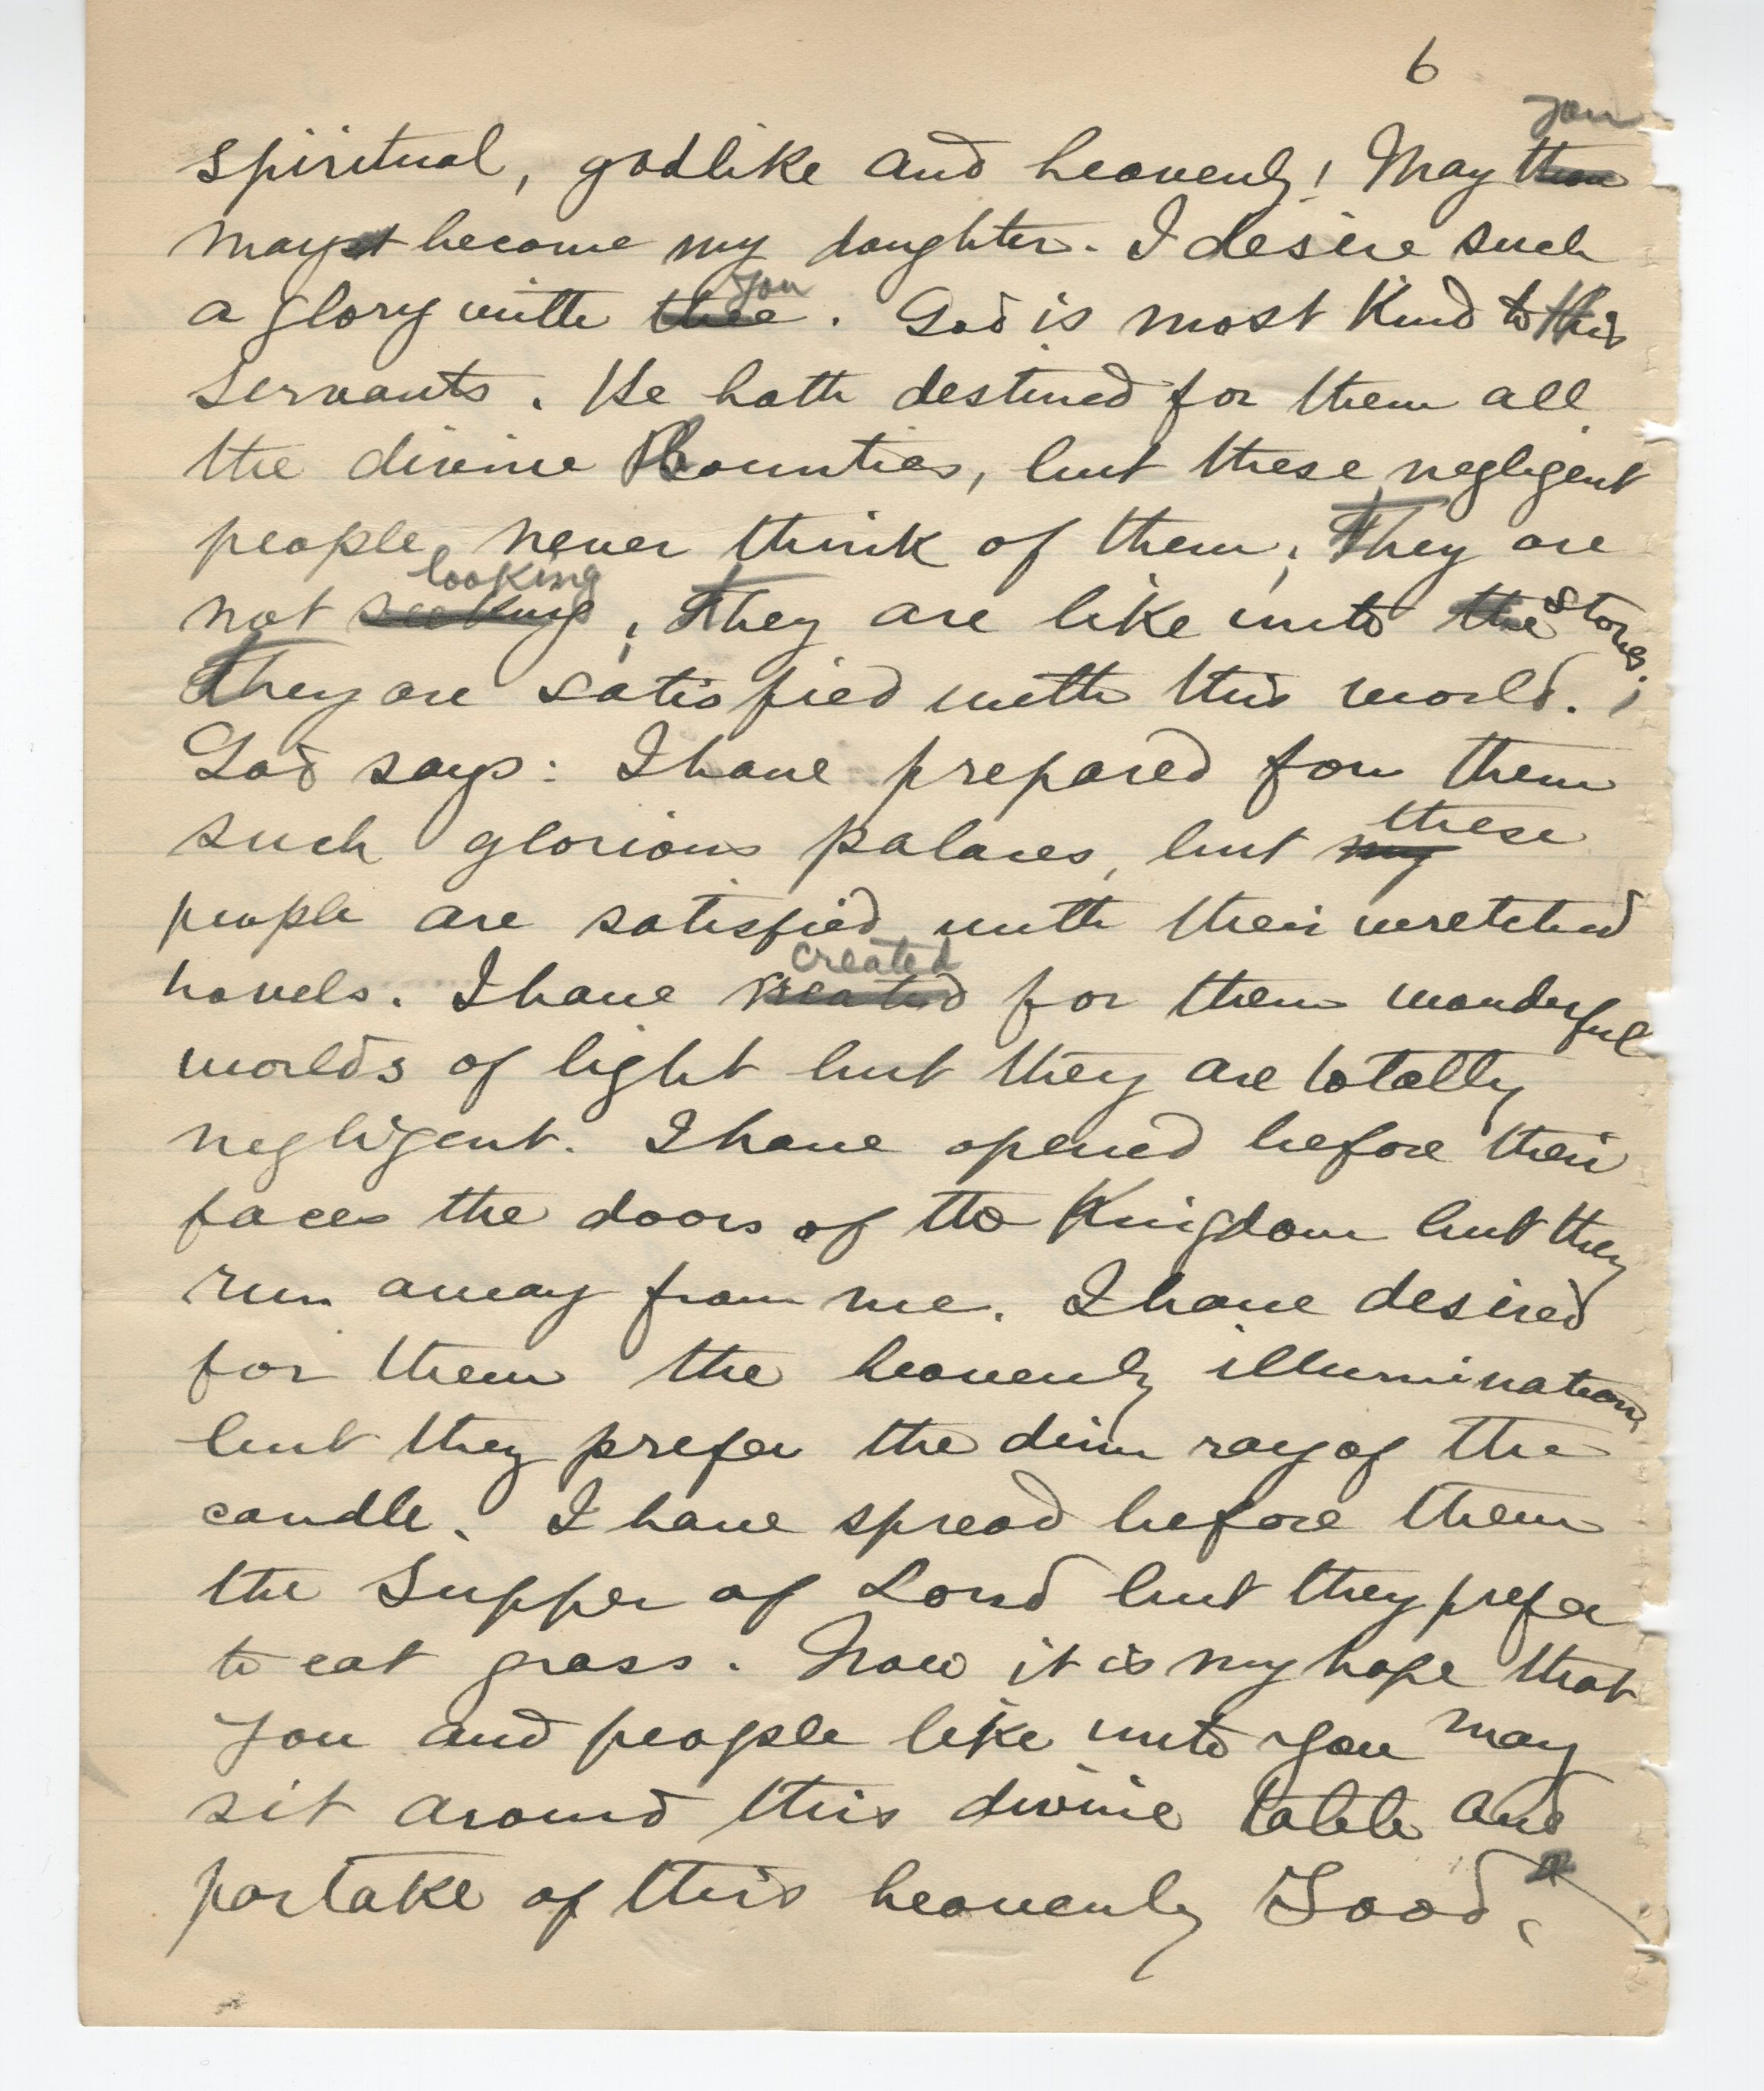 6
you
spiritual, godlike and heavenly! May thou
mayst become my daughter. I desire such
you
a glory with thee. God is most Kind to His
servants. He hath destined for them all
the divine Bounties, but these negligent
people never think of them; They are
looking
not seeking; They are like unto the stones;
They are satisfied with this world.
God says: I have prepared for them
these
such glorious palaces, but my
people are satisfied with their wretched
created
hovels. I have created for them wonderful
worlds of light but they are totally
negligent. I have opened before their
faces the doors of the Kingdom but they
run away from me. I have desired
for them the heavenly illumination,
but they prefer the dim ray of the
candle. I have spread before them
the Supper of Lord but they prefer
to eat grass. Now it is my hope that
you and people like unto you may
sit around this divine table and
partake of this heavenly Food.